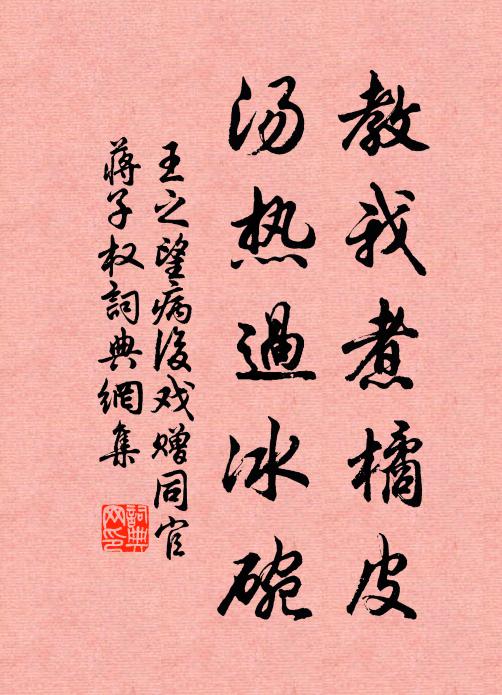 教我煮橘皮
汤热過冰碗
王之望病後戏赠同官
蒋子权詞典網集
詞典
网印